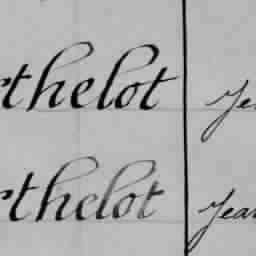 rthelot Je
rthelot Jean